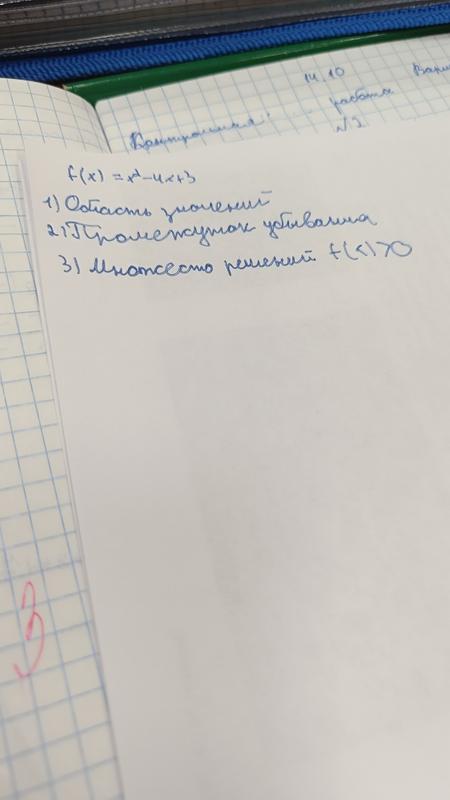 14.10
Контрольная работа
№2
f(x) = x²-4x+3
1) Область значений
2) Промежуток убывания
3) Множесто решений f(x)>0
3